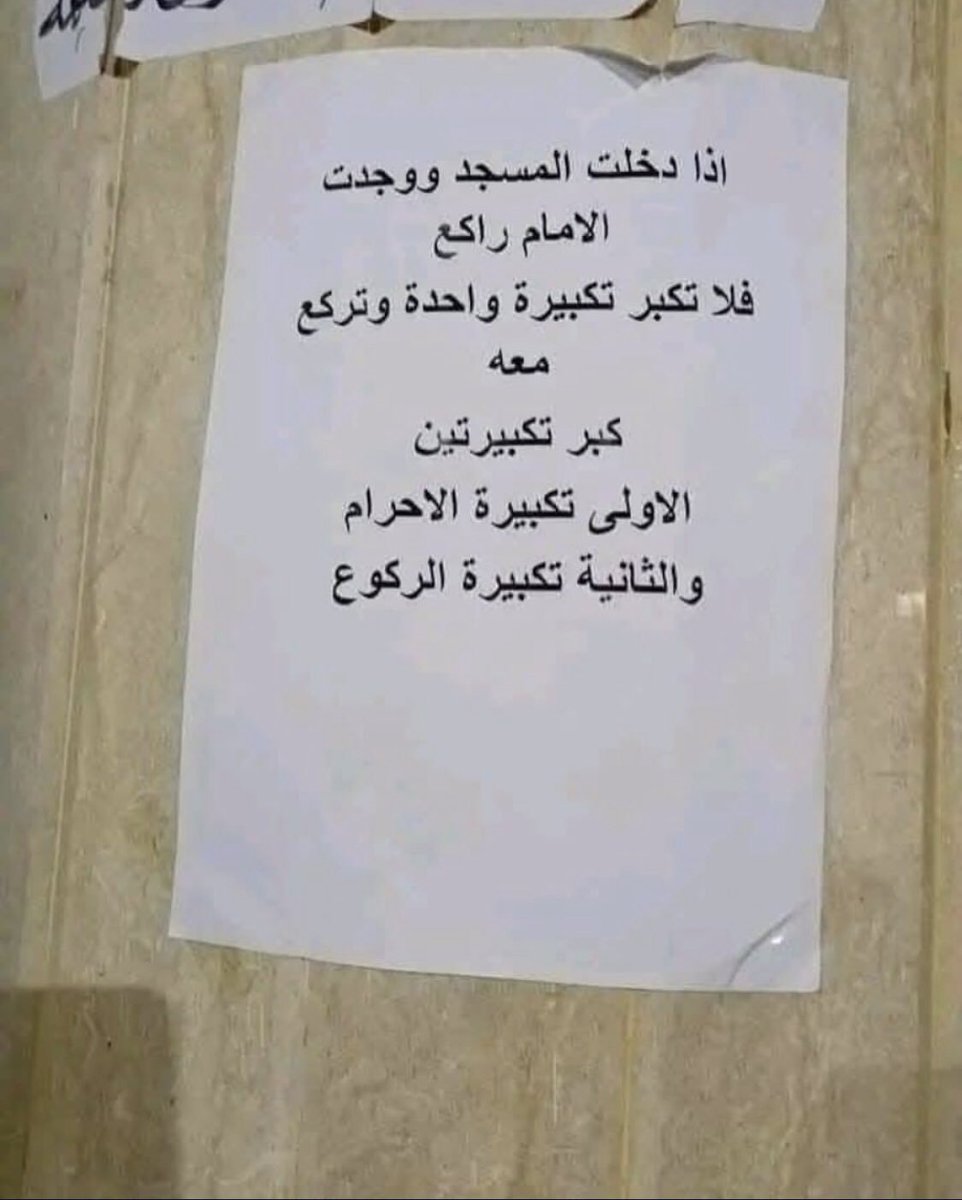 اذا دخلت المسجد ووجدت
الامام راكع
فلا تكبر تكبيرة واحدة وتركع
معه
كبر تكبيرتين
الاولى تكبيرة الاحرام
والثانية تكبيرة الركوع